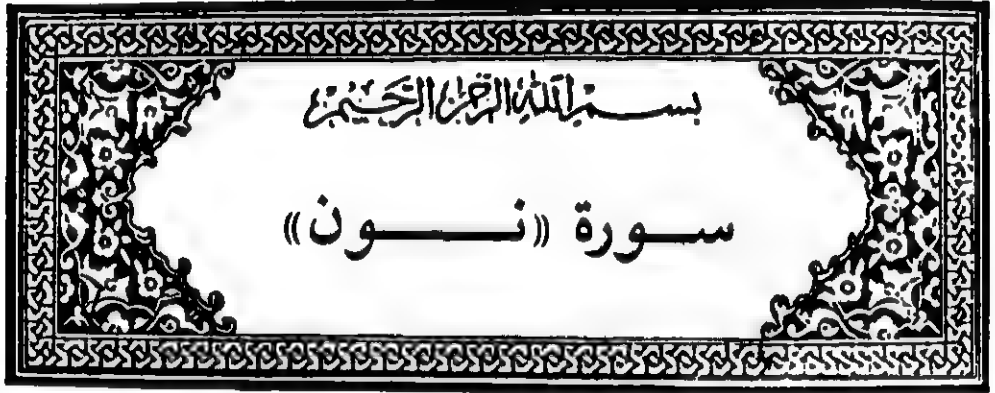 بسم الله الرحمن الرحيم
سورة «نون»